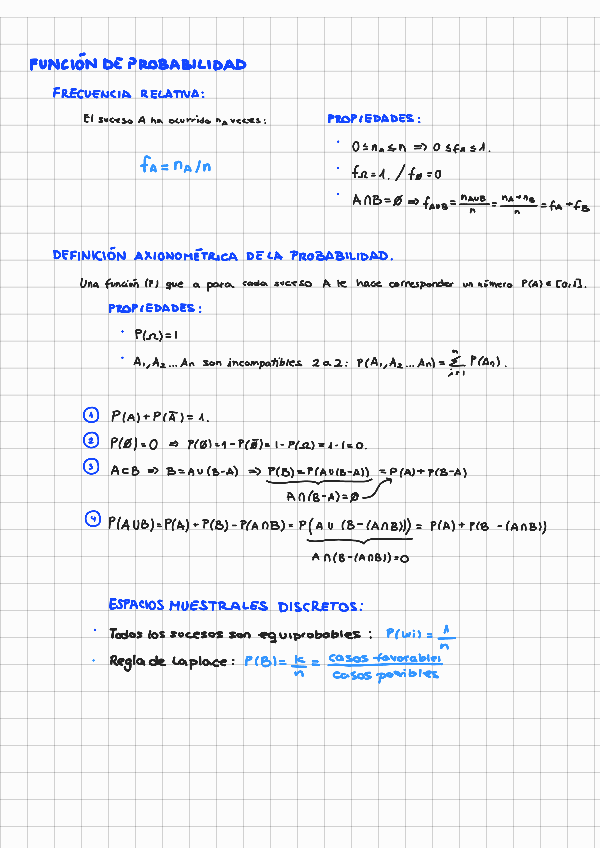 FUNCIÓN DE PROBABILIDAD
FRECUENCIA RELATIVA:
El suceso A ha ocurrido n_A veces:
f_A = n_A/n
PROPIEDADES:
· 0 ≤ n_A ≤ n ⇒ 0 ≤ f_A ≤ 1.
· f_Ω = 1. / f_ø = 0
· A∩B = Ø ⇒ f_A∪B = n_A∪B/n = n_A + n_B/n = f_A + f_B
DEFINICIÓN AXIONOMÉTRICA DE LA PROBABILIDAD.
Una función (P) que a para cada suceso A le hace corresponder un número P(A) ∈ [0,1].
PROPIEDADES:
· P(Ω) = 1
· A₁, A₂ ... An son incompatibles 2 a 2: P(A₁, A₂ ... An) = ∑ⁿᵢ₌₁ P(An).
① P(A) + P(Ā) = 1.
② P(Ø) = 0 ⇒ P(Ø) = 1 - P(Ø̄) = 1 - P(Ω) = 1 - 1 = 0.
③ A⊂B ⇒ B = A∪(B-A) ⇒ P(B) = P(A∪(B-A)) = P(A) + P(B-A)
A∩(B-A) = Ø
④ P(A∪B) = P(A) + P(B) - P(A∩B) = P(A∪(B-(A∩B))) = P(A) + P(B-(A∩B))
A∩(B-(A∩B)) = 0
ESPACIOS MUESTRALES DISCRETOS:
· Todos los sucesos son equiprobables: P(wi) = 1/n
· Regla de Laplace: P(B) = k/n = casos favorables/casos posibles